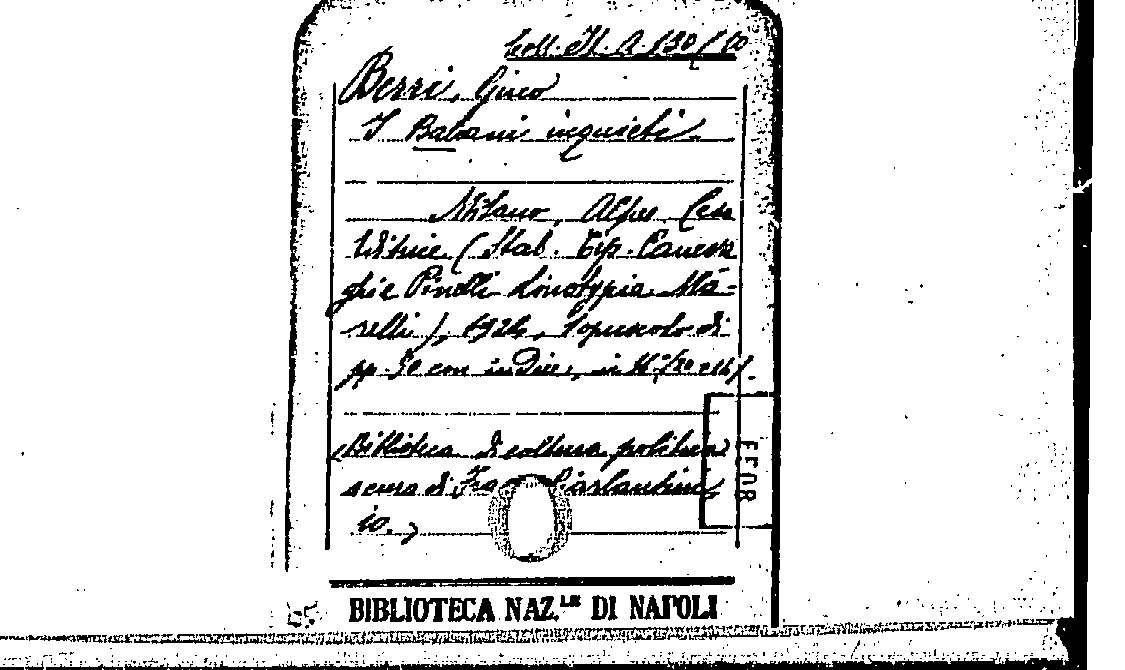 Coll. It. A. 130/10
Berri, Gino
I Balcani inquieti.
Milano, Alpes Casa
Editrice (Stab. Tip. Paneva
ghi e Pinelli Linotypia Ma-
relli), 1924, 1 opuscolo di
pp. con indice, in 16°
(Biblioteca di coltura politica
a cura di Franco Ciarlantini,
10.)
BIBLIOTECA NAZ.LE DI NAPOLI